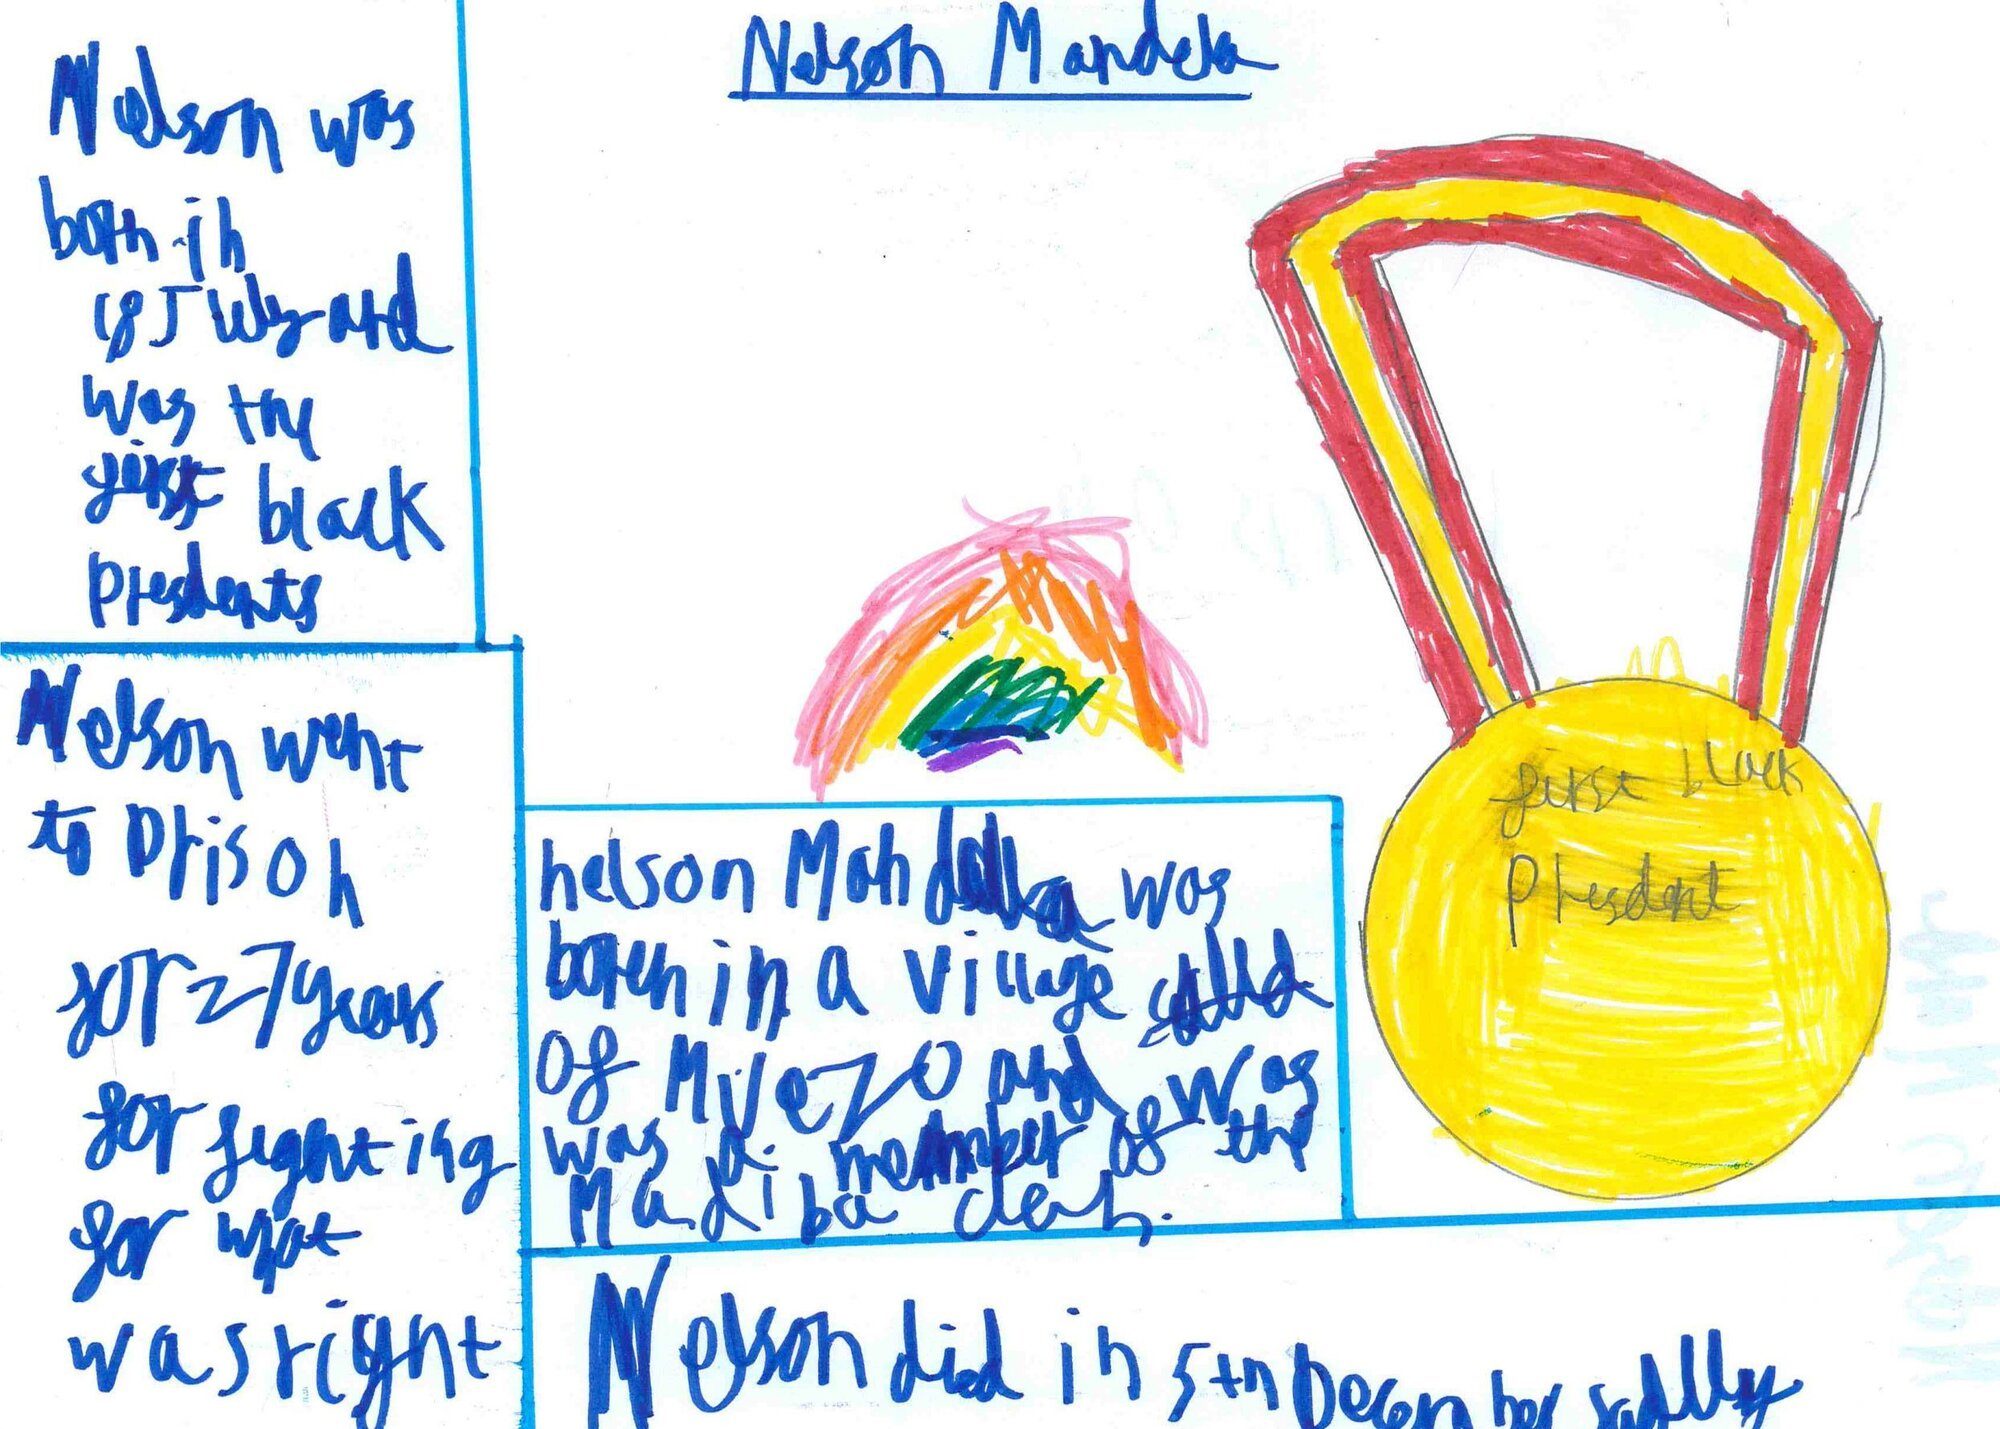 Nelson Mandela
Nelson was
born in
18 July and
was the
first black
presdents
Nelson went
to prison
for 27 years
for fighting
for what
was right
nelson Mandela was
boren in a village
of Mvezo and was
was a member of the
Madiba clan.
first black
presdent
Nelson died in 5th December sadlly